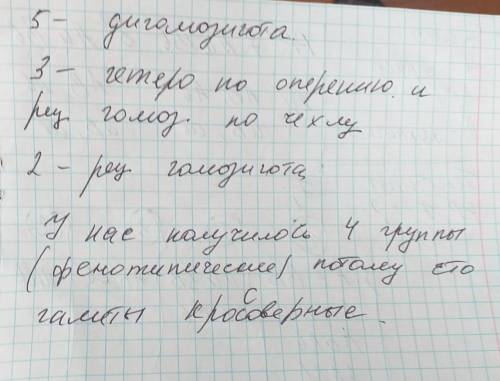 5 - дигомозигота
3 - гетеро по оперению и
рец гомоз. по чехлу
2 - рец гомозигота
У нас получилось 4 группы
(фенотипические) потому что
гаметы кроссоверные.